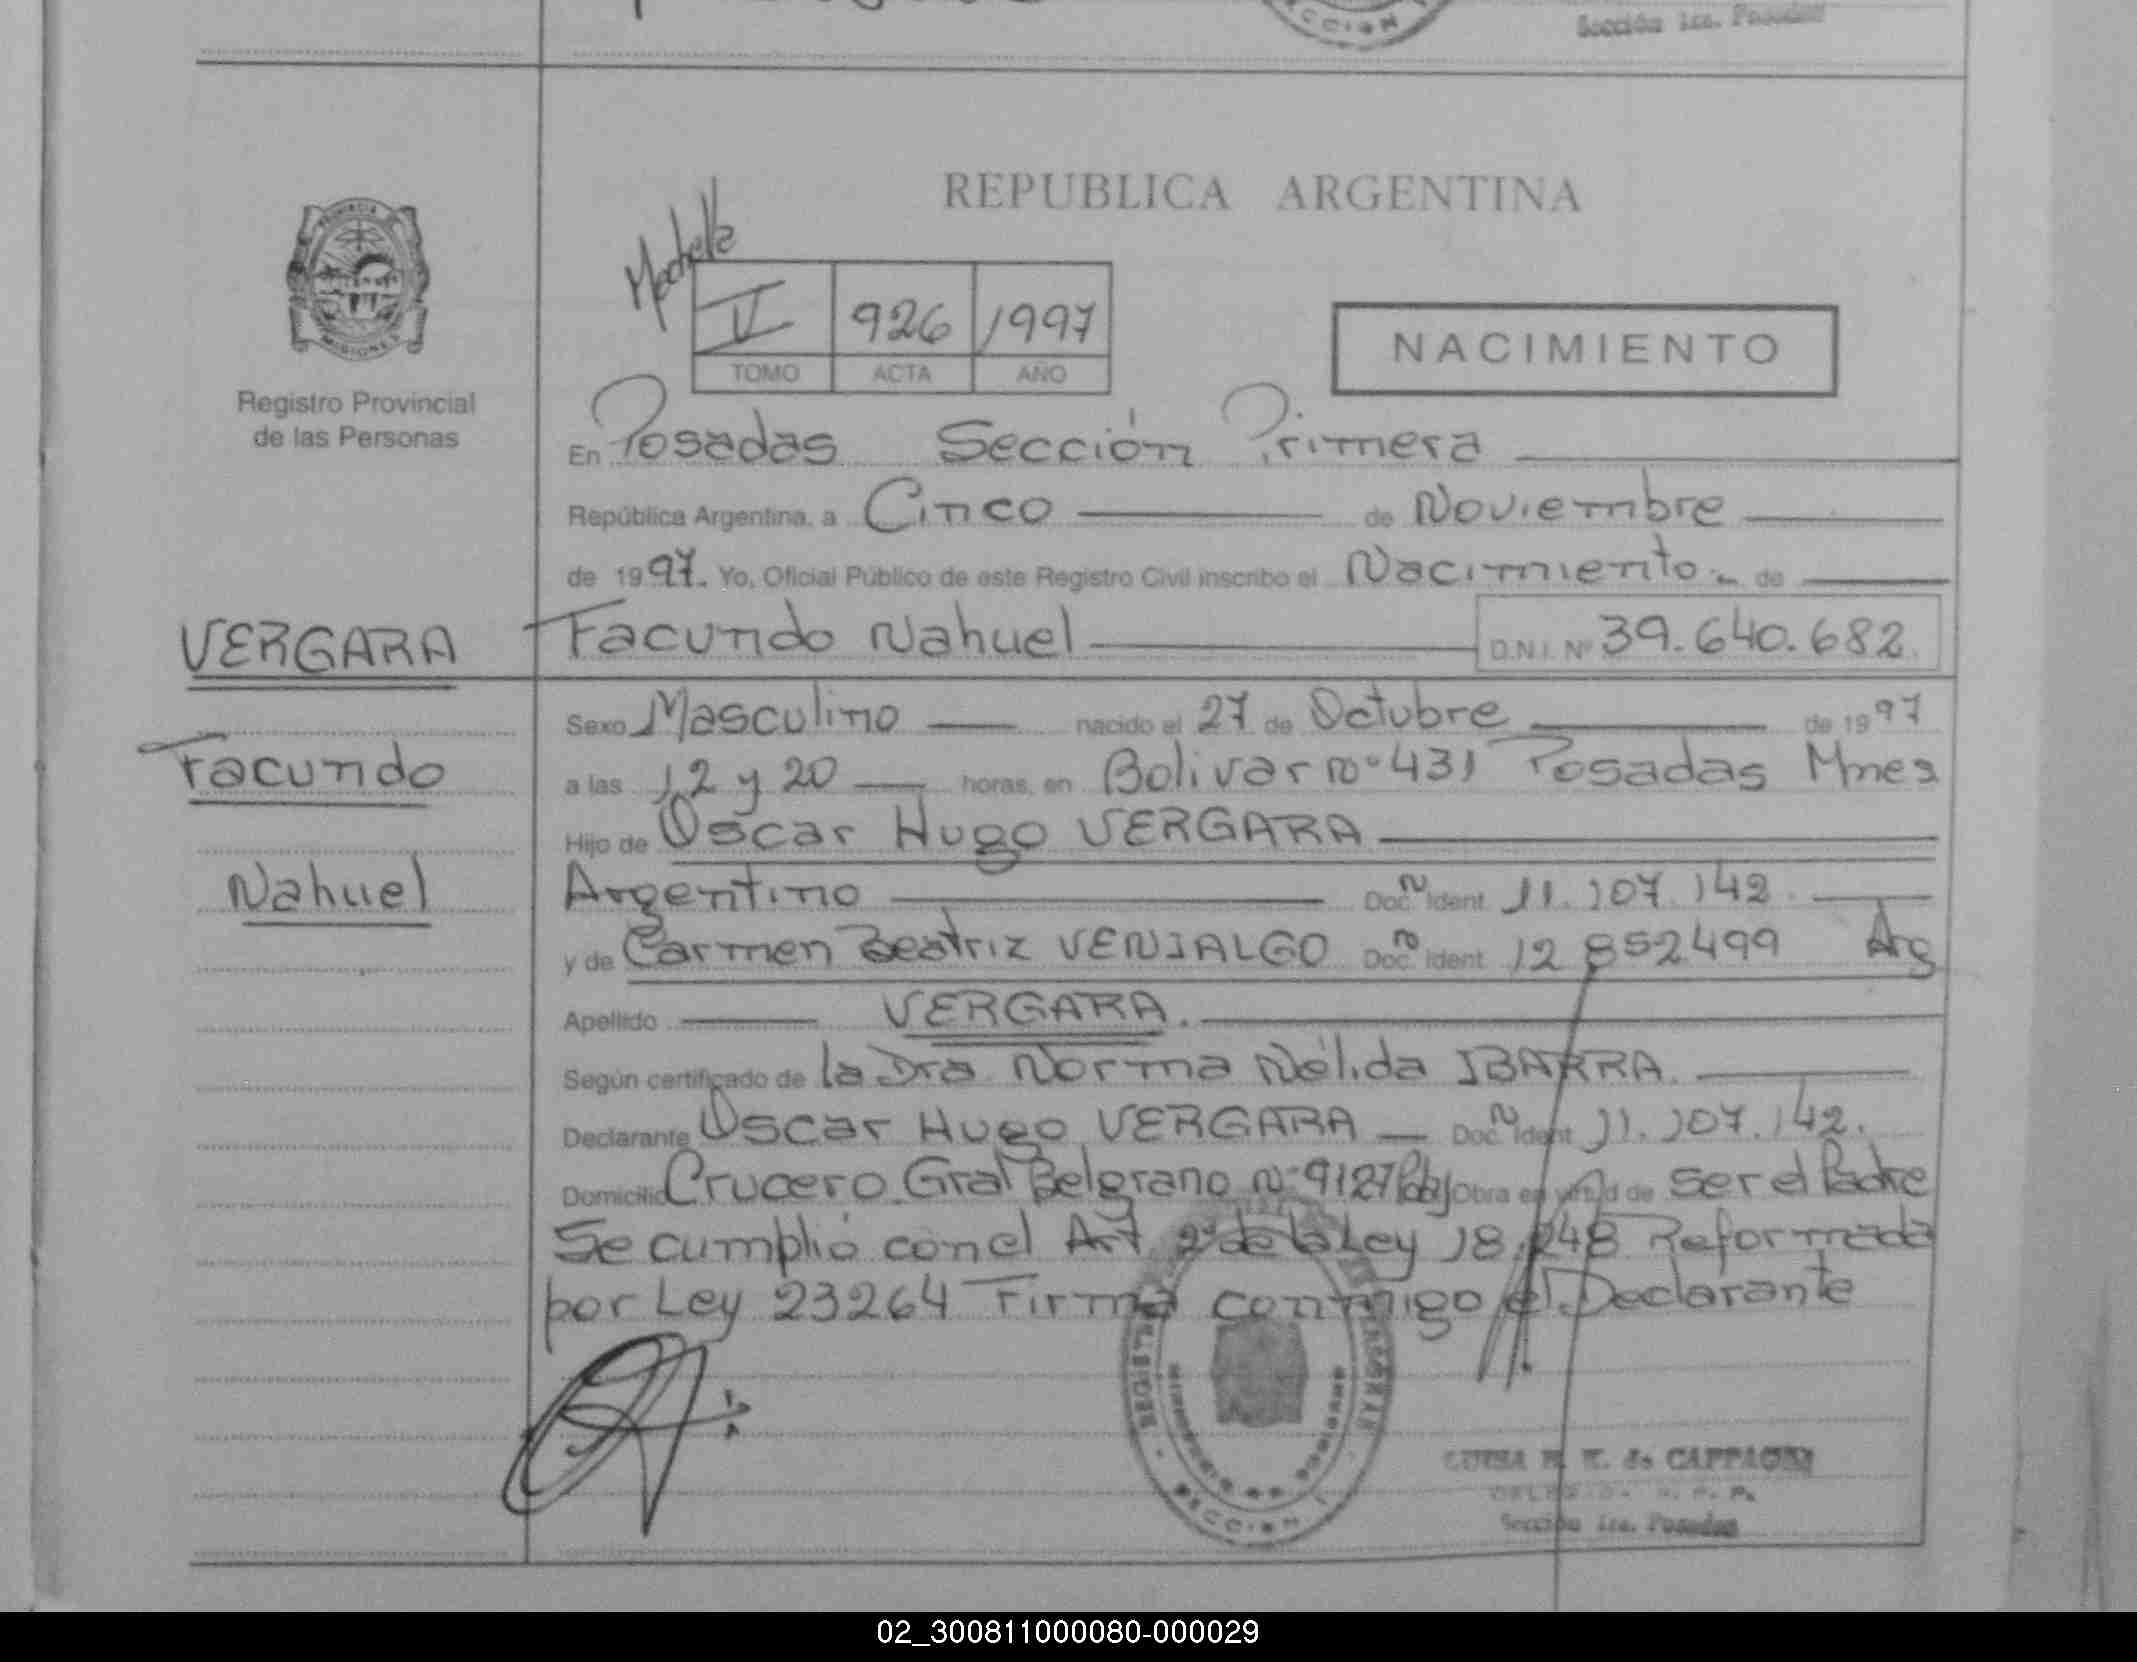 Sección 1ra. Posadas
SECCION
REPUBLICA ARGENTINA
PROVINCIA
MISIONES
Registro Provincial
de las Personas
V 926 1997
TOMO ACTA AÑO
NACIMIENTO
En Posadas Sección Primera
República Argentina, a Cinco de Noviembre
de 1997. Yo, Oficial Público de este Registro Civil inscribo el Nacimiento. de
VERGARA
Facundo Nahuel D.N.I. Nº 39.640.682
Sexo Masculino nacido el 27 de Octubre de 1997
Facundo
a las 12 y 20 horas, en Bolivar nº 431 Posadas Mnes
Hijo de Oscar Hugo VERGARA
Nahuel
Argentino Doc. n Ident 11.107.142
y de Carmen Beatriz VENIALGO Doc. nº Ident 12852499 Arg
Apellido VERGARA.
Según certificado de la Dra Norma Nélida IBARRA.
Declarante Oscar Hugo VERGARA Doc. n Ident 11.107.142.
Domicilio Crucero Gral Belgrano Nº 9127 Obra en virtud de ser el Padre
Se cumplió con el Art 2º de la Ley 18.248 Reformada
por Ley 23264 Firma conmigo el Declarante
SECCION 1
LUISA de
Sección 1ra. Posadas
02_300811000080-000029